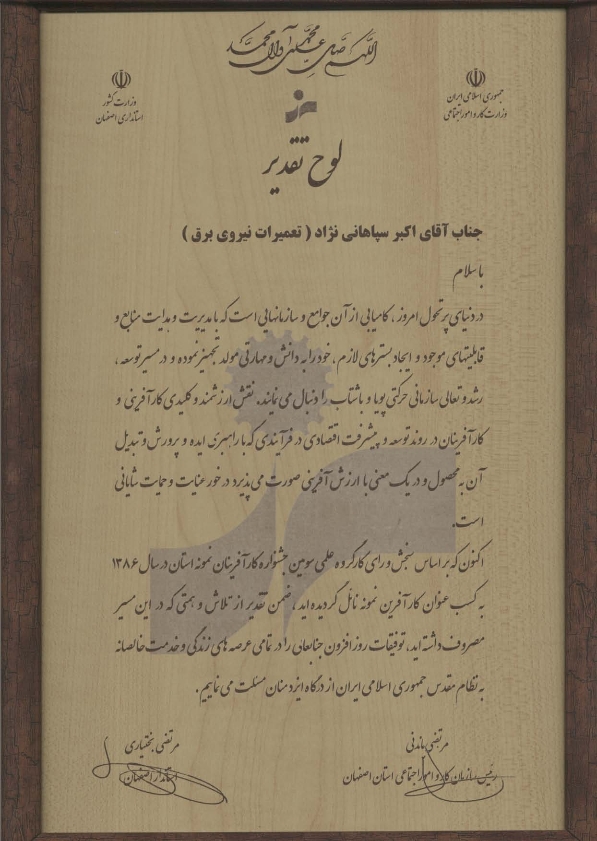 اللهم صل علی محمد وآل محمد
جمهوری اسلامی ایران
وزارت کار و امور اجتماعی
وزارت کشور
استانداری اصفهان
لوح تقدیر
جناب آقای اکبر سپاهانی نژاد ( تعمیرات نیروی برق )
باسلام
در دنیای پرتحول امروز ، کامیابی از آن جوامع و سازمانهایی است که با مدیریت و هدایت منابع و
قابلیتهای موجود و ایجاد بسترهای لازم ، خود را به دانش و مهارتی مولد تجهیز نموده و در مسیر توسعه ،
رشد و تعالی سازمانی حرکتی پویا و باشتاب را دنبال می نمایند. نقش ارزشمند و کلیدی کارآفرینی و
کارآفرینان در روند توسعه و پیشرفت اقتصادی در فرآیندی که با راهبری ایده و پرورش و تبدیل
آن به محصول و در یک معنی با ارزش آفرینی صورت می پذیرد در خور عنایت و حمایت شایانی
است.
اکنون که بر اساس سنجش و رای کارگروه علمی سومین جشنواره کارآفرینان نمونه استان در سال ۱۳۸۶
به کسب عنوان کارآفرین نمونه نائل گردیده اید ، ضمن تقدیر از تلاش و همتی که در این مسیر
مصروف داشته اید، توفیقات روزافزون جنابعالی را در تمامی عرصه های زندگی و خدمت خالصانه
به نظام مقدس جمهوری اسلامی ایران از درگاه ایزد منان مسئلت می نماییم.
مرتضی
رئیس سازمان کار و امور اجتماعی استان اصفهان
مرتضی بختیاری
استاندار اصفهان